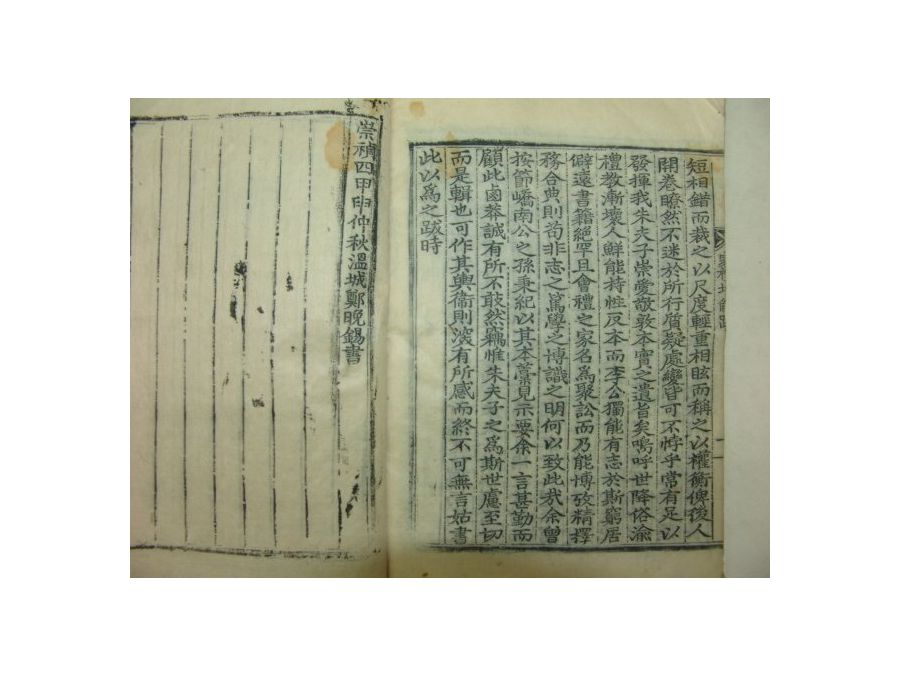 短相錯而裁之以尺度輕重相眩而稱之以權衡俾後人
開卷瞭然不迷於所行質疑處變皆可不悖乎當有足以
發揮我朱夫子崇愛敬敦本實之遺旨矣嗚呼世降俗渝
禮教漸壞人鮮能持性反本而李公獨能有志於斯窮居
僻遠書籍絶罕且會禮之家名爲聚訟而乃能博攷精擇
務合典則苟非志之篤學之博識之明何以致此哉余曾
按節嶠南公之孫秉紀以其本藁見示要余一言甚勤而
顧此鹵莽誠有所不敢然竊惟朱夫子之爲斯世慮至切
而是輯也可作其輿衛則深有所感而終不可無言姑書
此以爲之跋時
崇禎四甲申仲秋溫城鄭晩錫書